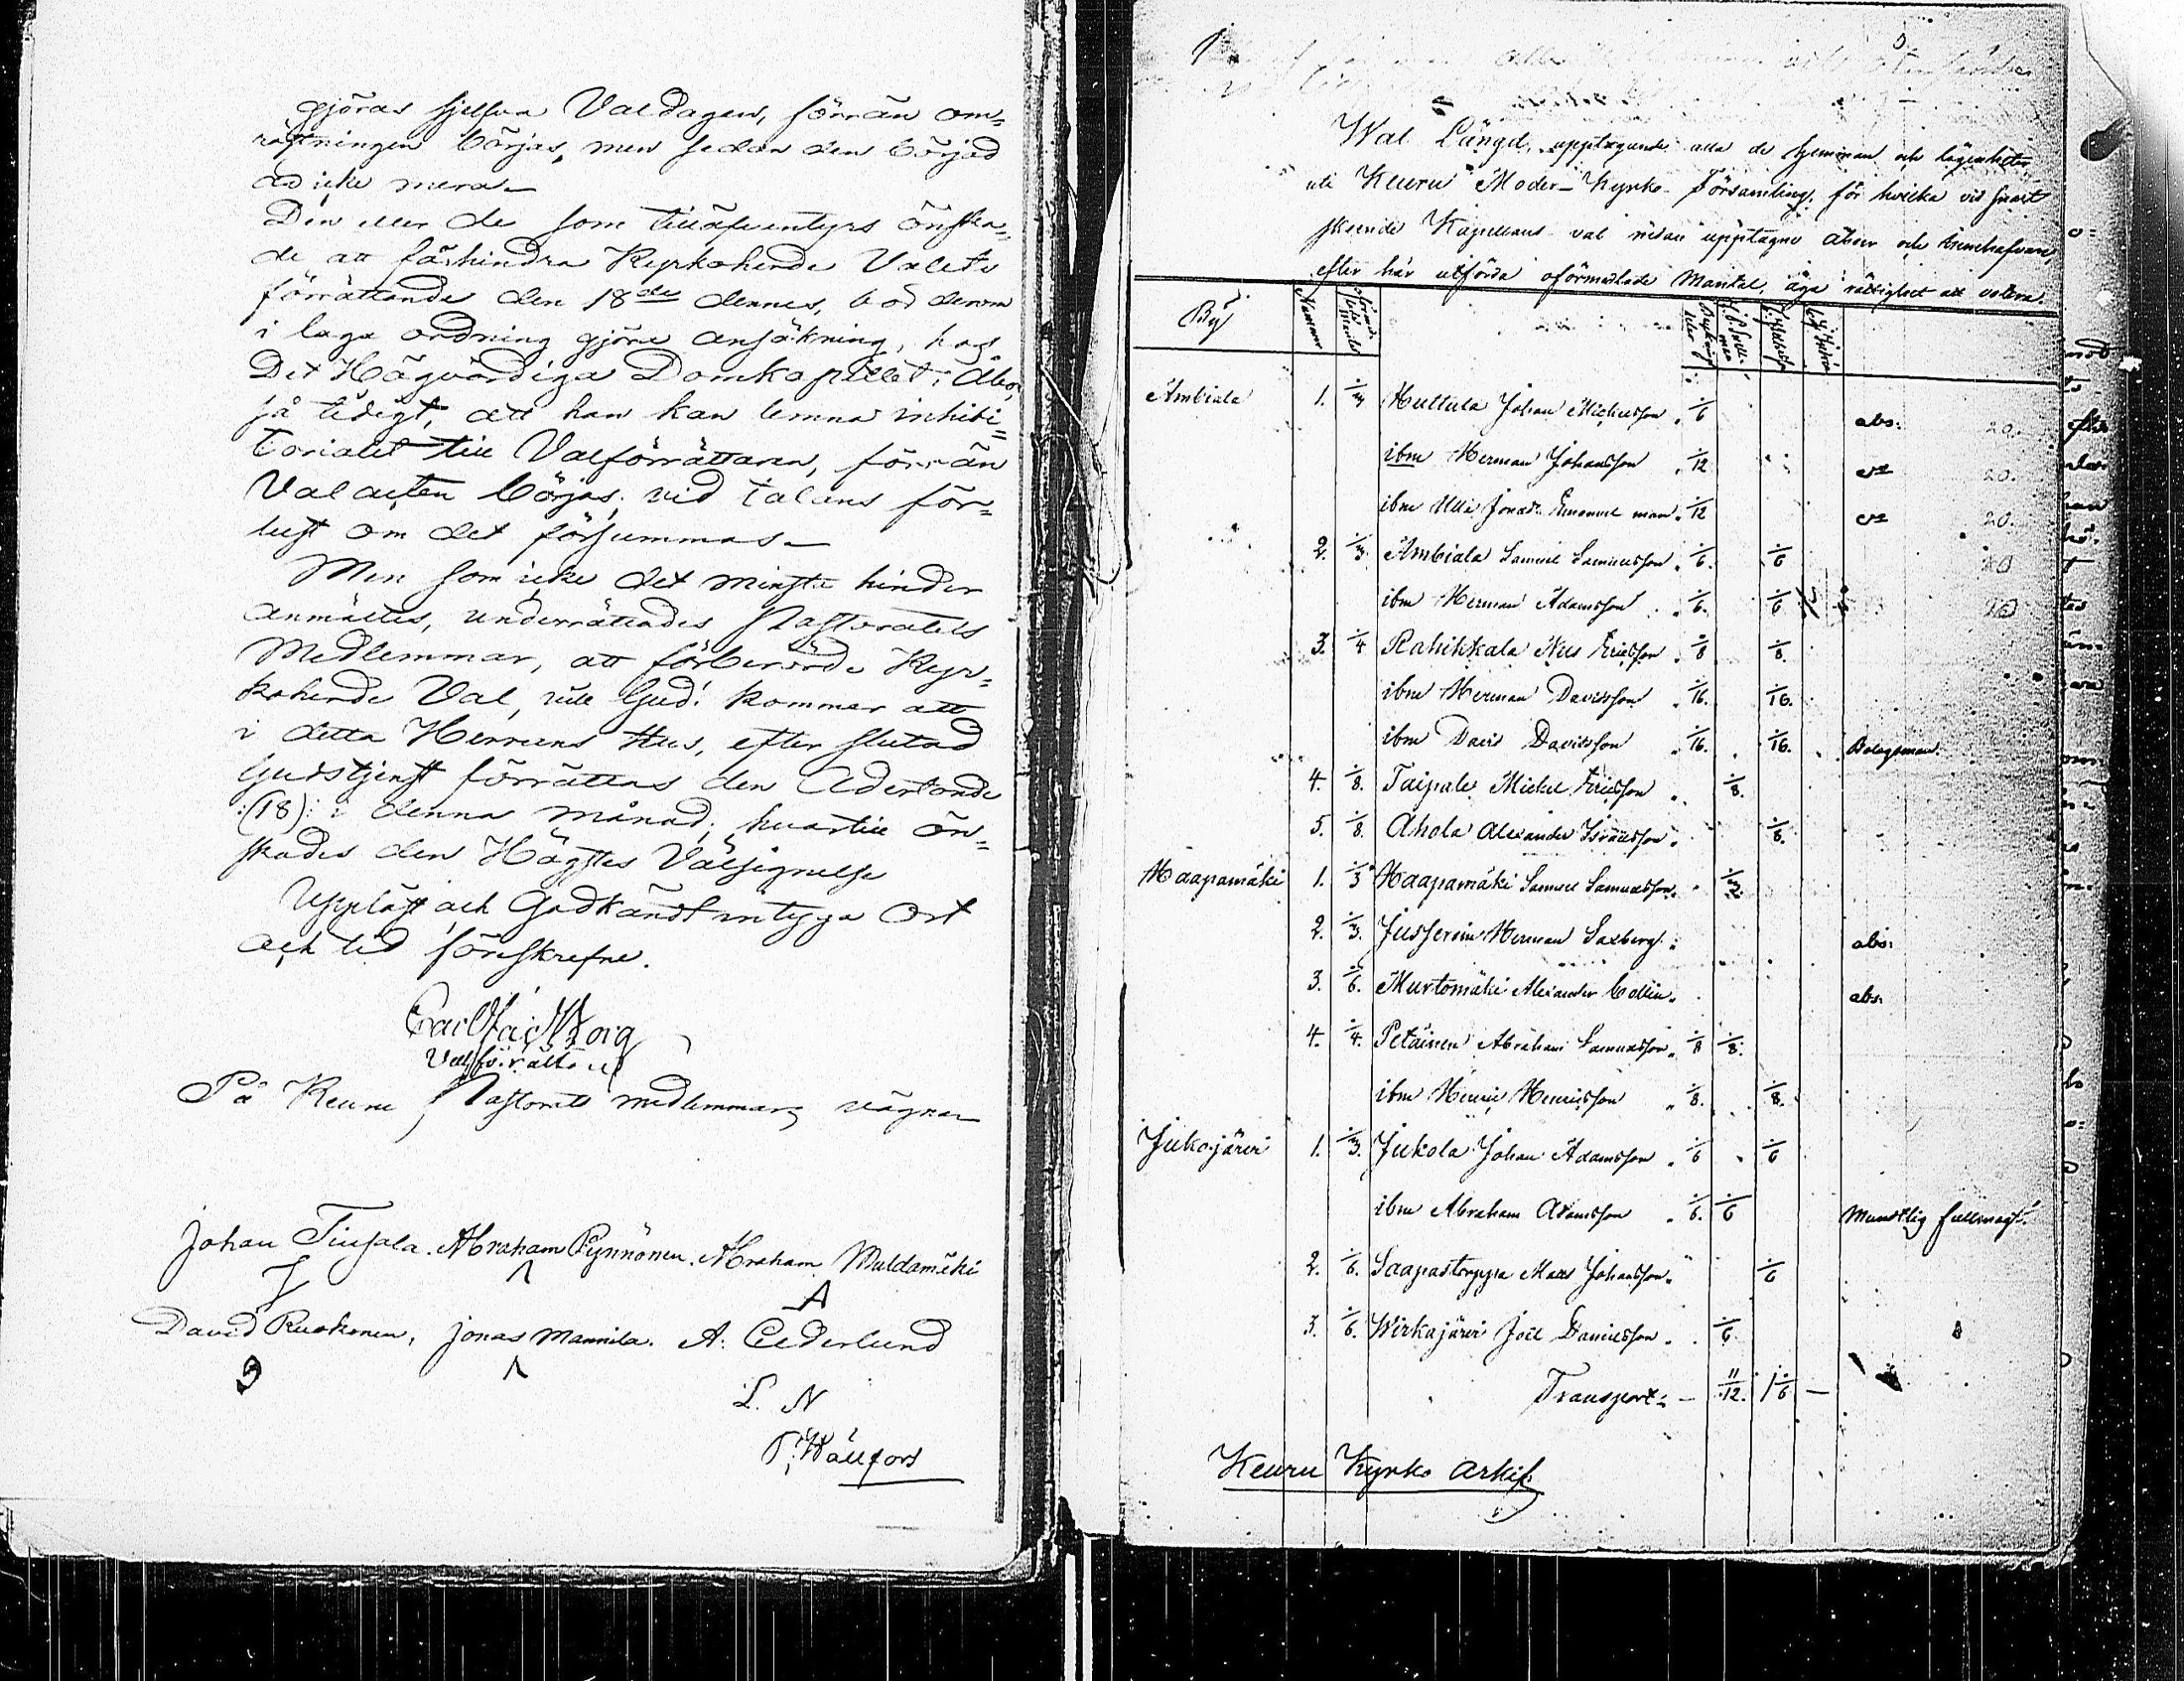 gjöras sjelfva Valdagen, förrän om=
röstningen börjas, men sedan den börjad
då icke mera.
Den eller de som tilläfventyrs önska=
de att förhindra Kyrkoherde Valets
förrättande den 18de dennes, bör derom
i laga ordning göra ansökning, hos
Det Högvördiga Domkapitlet i Åbo,
så tidigt, att han kan lemna inhibi=
torialet till Valförrättaren, förrän
Val acten börjas, vid talans för=
lust om det försummas.
Men som icke det minsta hinder
anmältes, underrättades Pastoratets
Medlemmar, att förberörde Kyr=
koherde Val, vill Gud! kommer att
i detta Herrans Hus, efter slutad
Gudstjenst förrättas den Adertonde
:(18): i denna månad; hvartill ön=
skades den Högstes Välsignelse
Uppläst och Godkändt intyga Ort
och tid förskrefne.
Valförrättare
På Keuru Pastorats medlemmars vägnar
Johan Tiusala. Abraham Pynnönen. Abraham Muldamäki
David Ruokonen, Jonas Mannila. A. Cederlund
L. N
P. Wällfors
Wal Längd, upptagande alla de hemman och lägenheter
uti Keuru Moder-Kyrko-Församling, för hvilka vid snart
skeende Kapellans val nedan upptagne åboer och innehafvare,
efter här utförda oförmedlade Mantal, äga rättighet att votera.
By Nummer
Ambiala 1. 1/3 Huttula Johan Michelsson 1/6 abs: 20.
ibm Herman Johansson 1/12 20.
ibm Ulla Jonasd. Emanuel man 1/12 20.
2. 1/3 Ambiala Samuel Samuelsson 1/6. 1/6 20
ibm Herman Adamsson 1/6. 1/6
3. 1/4 Rahikkala Nils Ericsson 1/8 1/8.
ibm Herman Davidsson 1/16. 1/16.
ibm David Davidsson 1/16. 1/16. Bolagsman.
4. 1/8. Taipale Michel Ericsson 1/8.
5. 1/8. Ahola Alexander Israelsson 1/8.
Haapamäki 1. 1/3 Haapamäki Samuel Samuelsson 1/3.
2. 1/3. Herman Saxberg abs:
3. 1/6. Murtomäki Alexander Collin abs.
4. 1/4. Petäinen Abraham Samuelsson 1/8 1/8.
ibm Henric Henricsson 1/8. 1/8.
Jukojärvi 1. 1/3. Jukola Johan Adamsson 1/6 1/6
ibm Abraham Adamsson 1/6. 1/6 Muntlig fullmagt.
2. 1/6. Saapastorppa Matts Johansson 1/6
3. 1/6. Wirkajärvi Joel Danielsson 1/6.
Transport: — 11/12. 1 1/6 —
Keuru Kyrko Arkif.